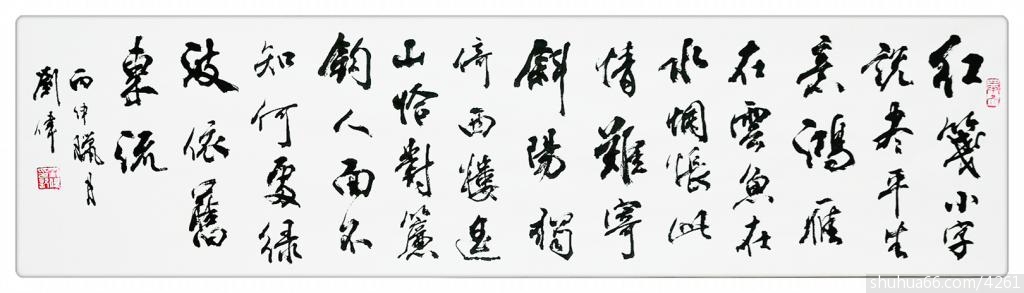 紅箋小字
説尽平生
意鴻雁
在雲魚在
水惆悵此
情難寄
斜陽獨
倚西樓遥
山恰對簾
鈎人面不
知何處緑
波依舊
東流
丙申臘月
劉偉
shuhua66.com/4261